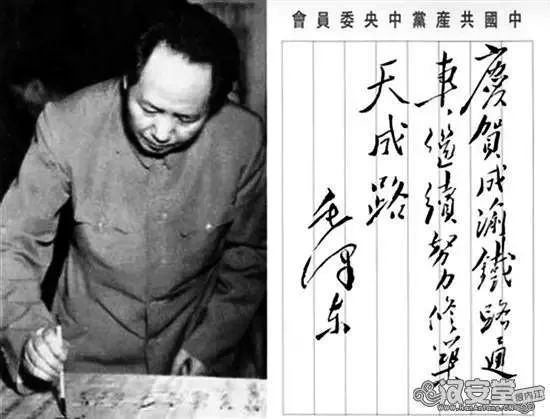 中國共產黨中央委員會
慶賀成渝鐵路通
車，繼續努力修築
天成路
毛澤东
汉安堂